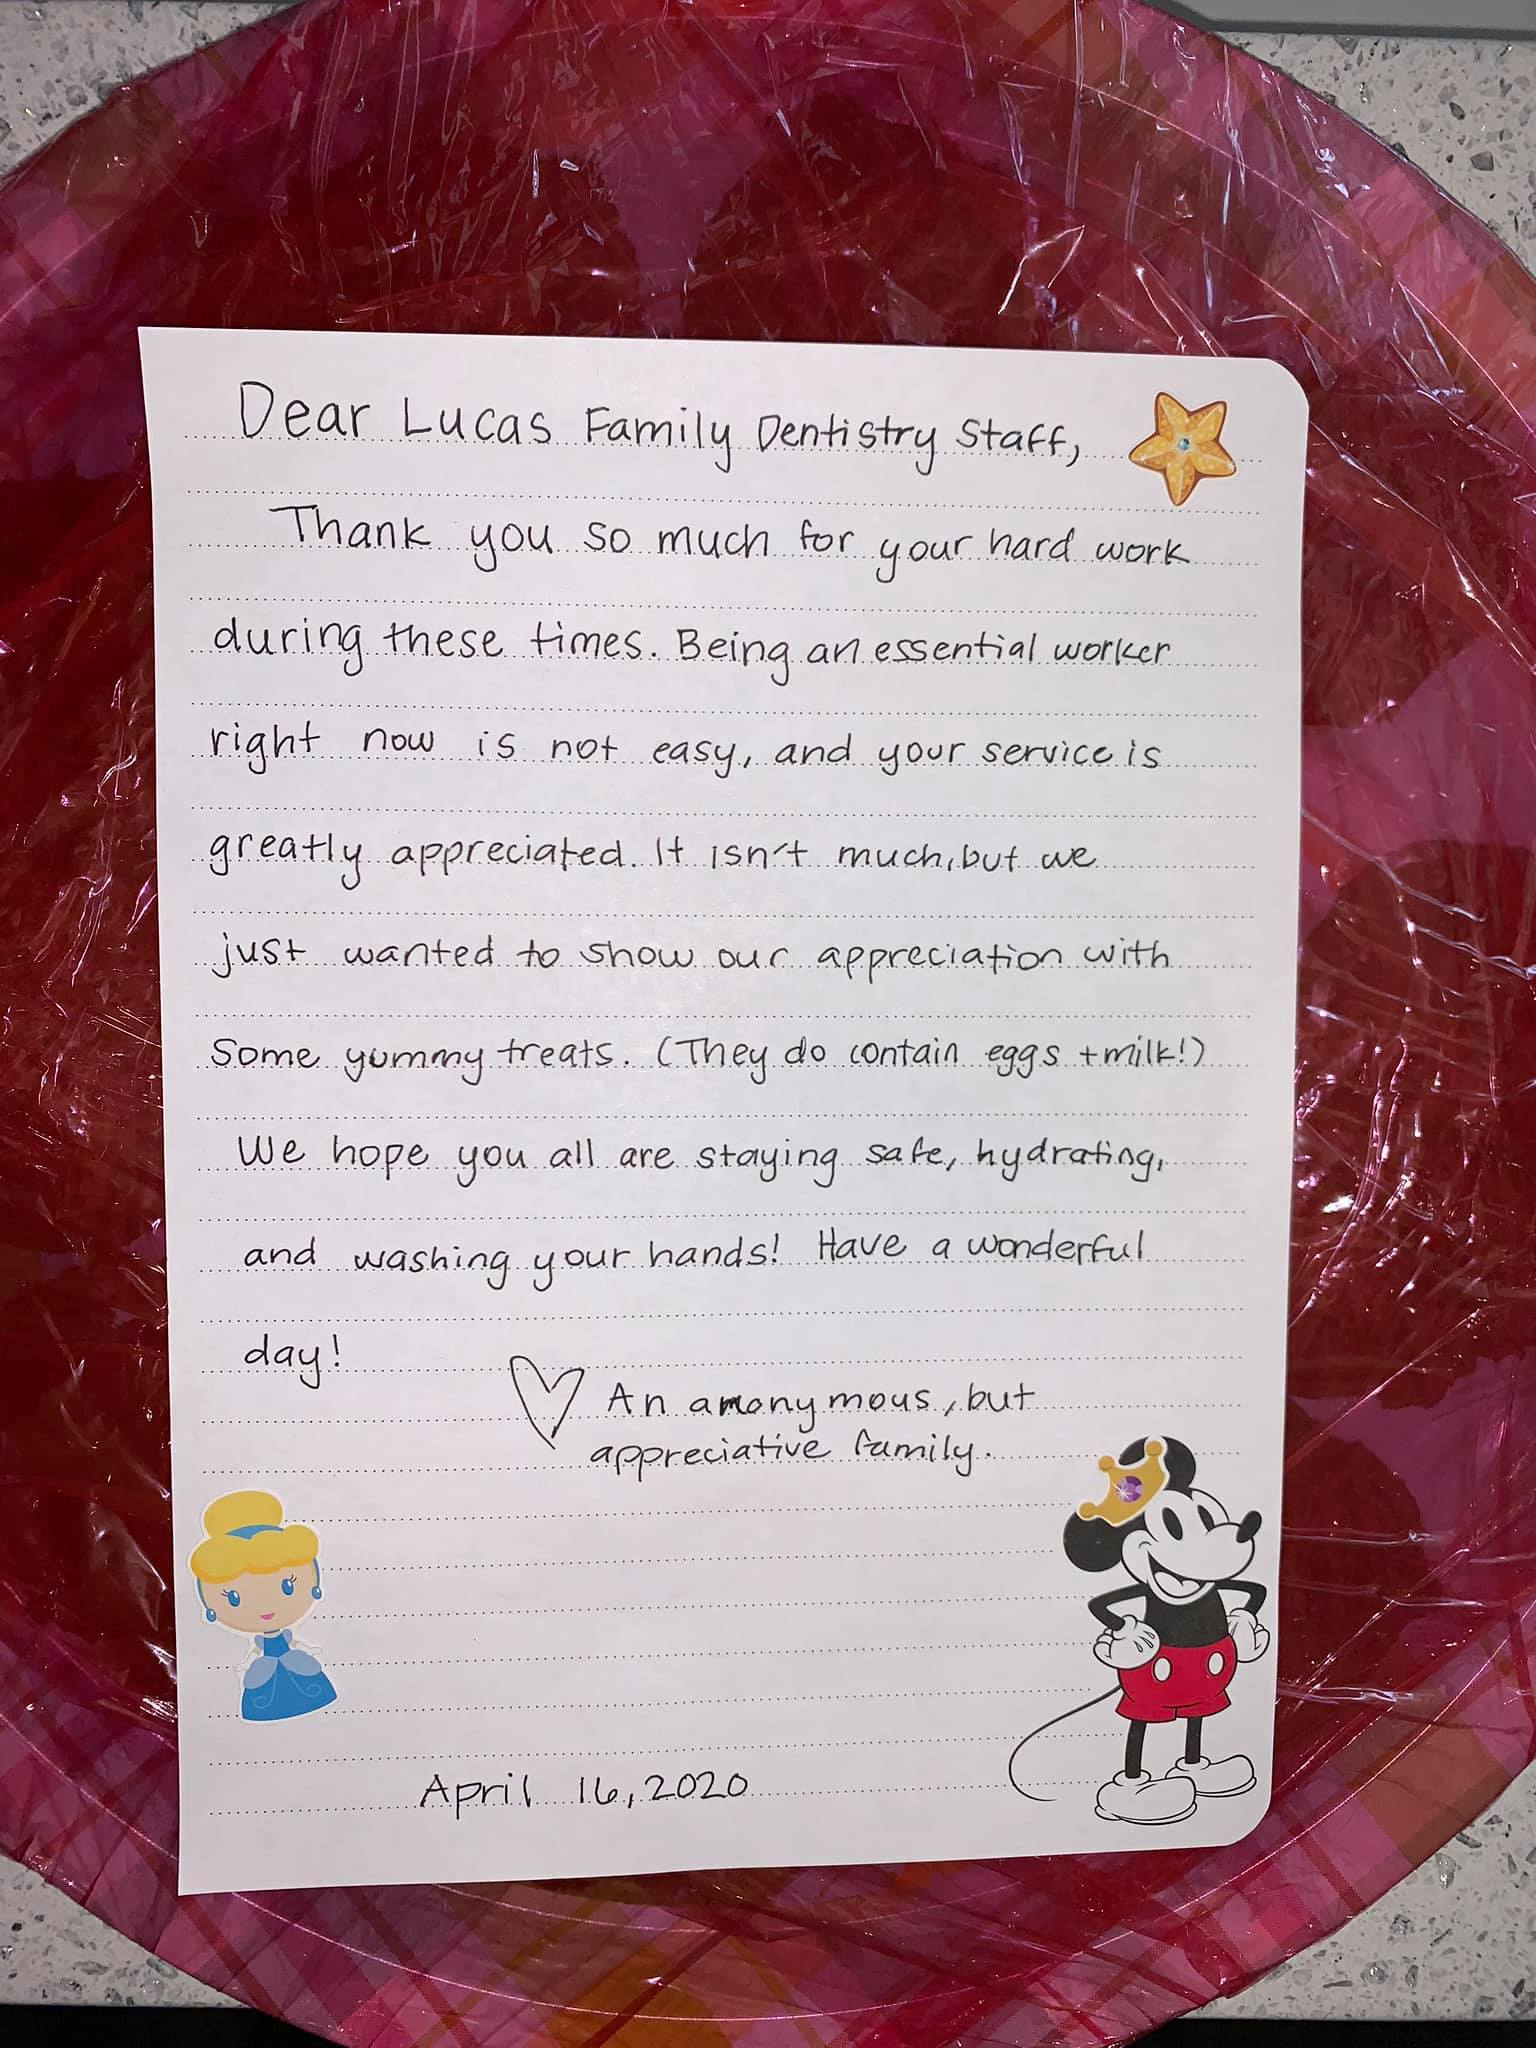 Dear Lucas Family Dentistry Staff,
Thank you so much for your hard work
during these times. Being an essential worker
right now is not easy, and your service is
greatly appreciated. It isn't much, but we
just wanted to show our appreciation with
some yummy treats. (They do contain eggs + milk!)
We hope you all are staying safe, hydrating,
and washing your hands! Have a wonderful
day!
An anonymous, but
appreciative family.
April 16, 2020